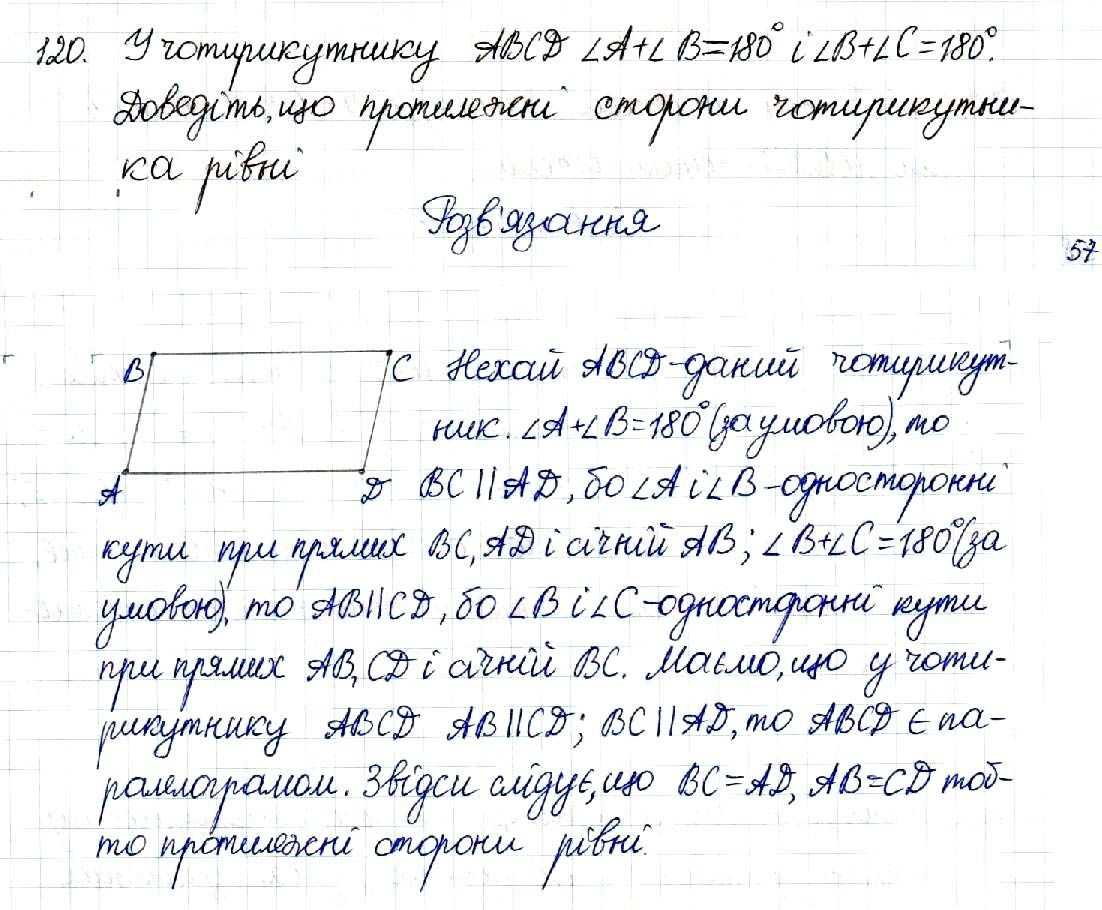 120. У чотирикутнику ABCD ∠A+∠B=180° і ∠B+∠C=180°.
Доведіть, що протилежні сторони чотирикутни-
ка рівні
Розв'язання
57
B
C
A
D
Нехай ABCD-даний чотирикут-
ник. ∠A+∠B=180° (за умовою), то
BC || AD, бо ∠A і ∠B-односторонні
кути при прямих BC, AD і січній AB; ∠B+∠C=180° (за
умовою), то AB||CD, бо ∠B і ∠C-односторонні кути
при прямих AB, CD і січній BC. Маємо, що у чоти-
рикутнику ABCD AB||CD; BC||AD, то ABCD є па-
ралелограмом. Звідси слідує, що BC=AD, AB=CD тоб-
то протилежні сторони рівні.